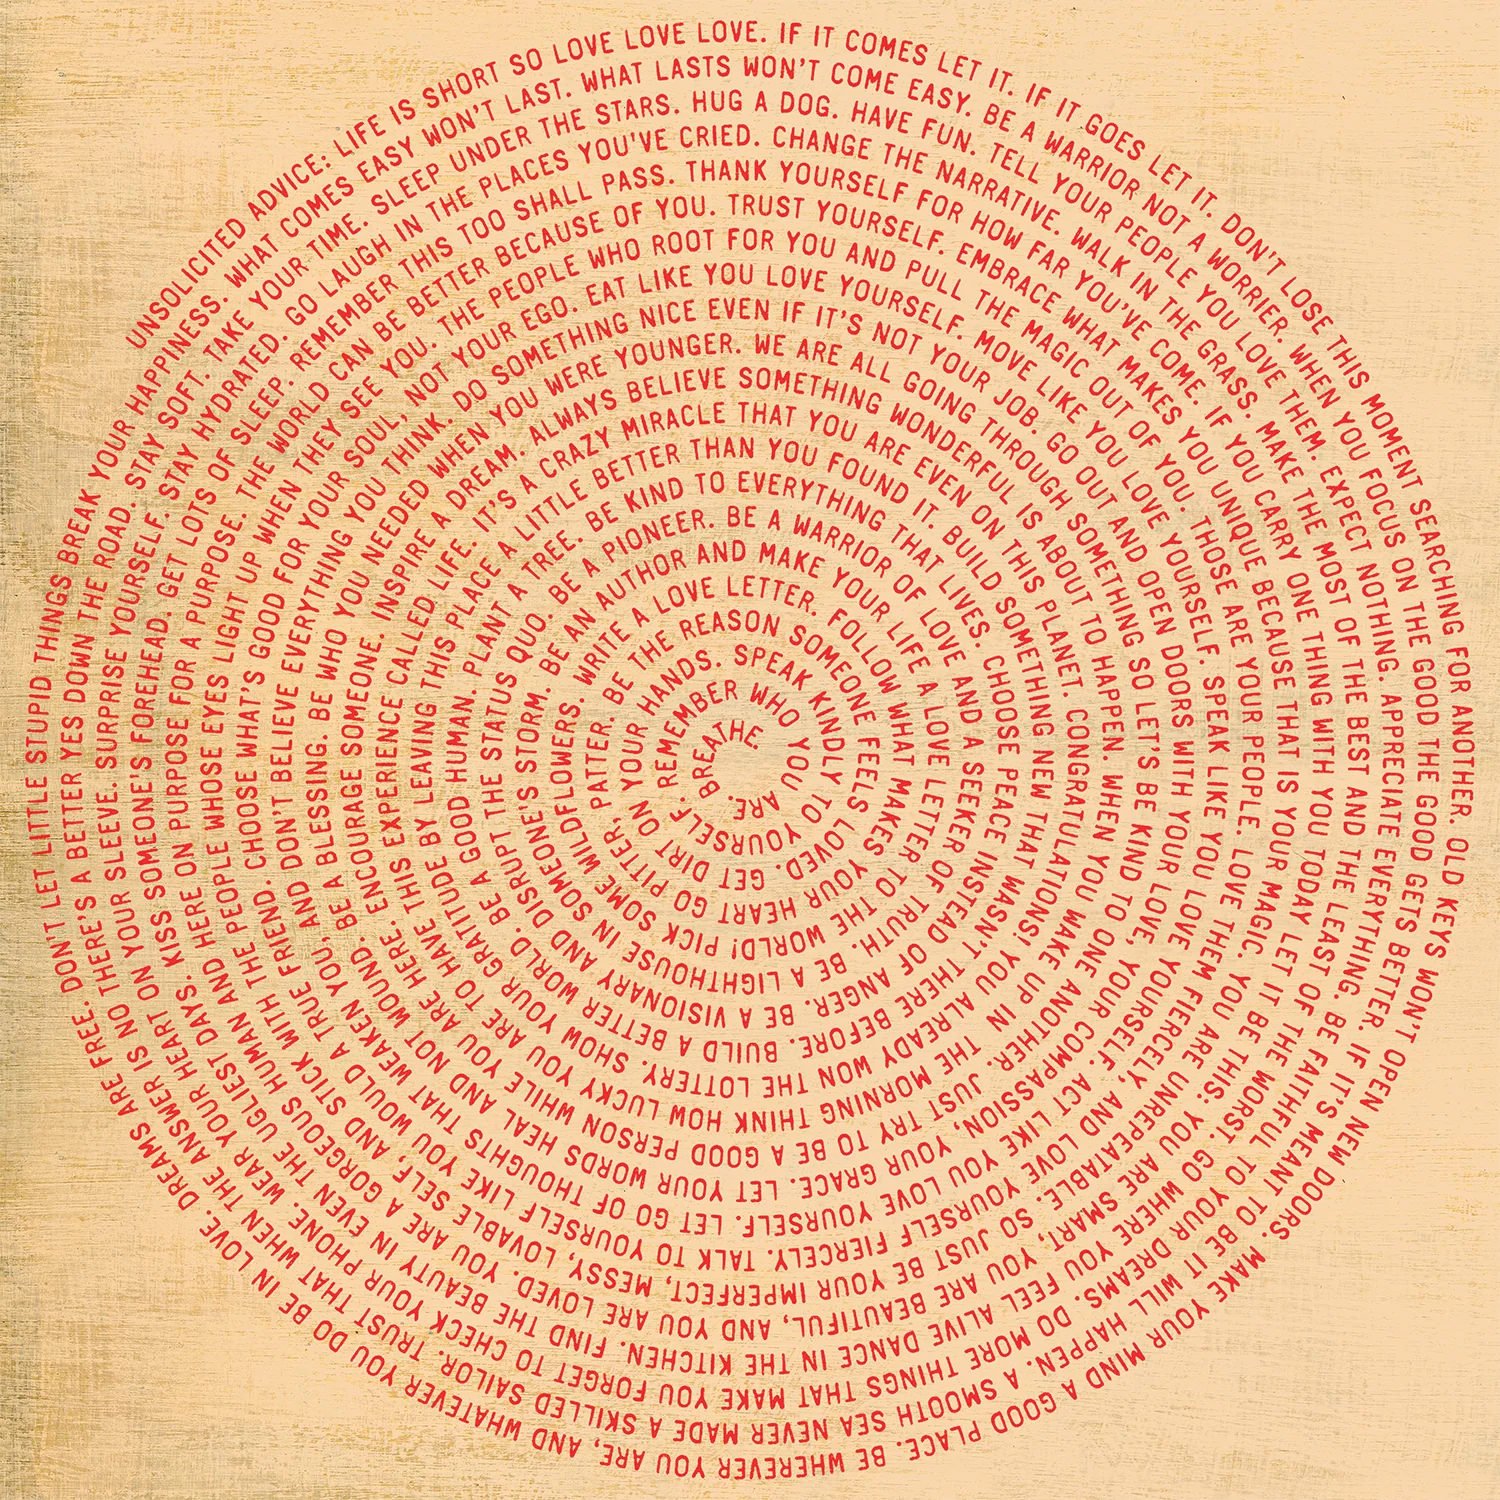 UNSOLICITED ADVICE: LIFE IS SHORT SO LOVE LOVE LOVE. IF IT COMES LET IT. IF IT GOES LET IT. DON'T LOSE THIS MOMENT SEARCHING FOR ANOTHER. OLD KEYS WON'T OPEN NEW DOORS. MAKE YOUR MIND A GOOD PLACE. BE WHEREVER YOU ARE, AND WHATEVER YOU DO BE IN LOVE. DREAMS ARE FREE. DON'T LET LITTLE STUPID THINGS BREAK YOUR HAPPINESS.
WHAT COMES EASY WON'T LAST. WHAT LASTS WON'T COME EASY. BE A WARRIOR NOT A WORRIER. WHEN YOU FOCUS ON THE GOOD THE GOOD GETS BETTER. IF IT'S MEANT TO BE IT WILL HAPPEN. A SMOOTH SEA NEVER MADE A SKILLED SAILOR. TRUST THAT WHEN THE ANSWER IS NO THERE'S A BETTER YES DOWN THE ROAD. STAY SOFT.
TAKE YOUR TIME. SLEEP UNDER THE STARS. HUG A DOG. HAVE FUN. TELL YOUR PEOPLE YOU LOVE THEM. EXPECT NOTHING. APPRECIATE EVERYTHING. BE FAITHFUL TO YOUR DREAMS. DO MORE THINGS THAT MAKE YOU FORGET TO CHECK YOUR PHONE. WEAR YOUR HEART ON YOUR SLEEVE. SURPRISE YOURSELF. STAY HYDRATED.
GO LAUGH IN THE PLACES YOU'VE CRIED. CHANGE THE NARRATIVE. WALK IN THE GRASS. MAKE THE MOST OF THE BEST AND THE LEAST OF THE WORST. GO WHERE YOU FEEL ALIVE DANCE IN THE KITCHEN. FIND THE BEAUTY IN EVEN THE UGLIEST DAYS. KISS SOMEONE'S FOREHEAD. GET LOTS OF SLEEP.
REMEMBER THIS TOO SHALL PASS. THANK YOURSELF FOR HOW FAR YOU'VE COME. IF YOU CARRY ONE THING WITH YOU TODAY LET IT BE THIS: YOU ARE SMART, YOU ARE BEAUTIFUL, AND YOU ARE LOVED. YOU ARE A GORGEOUS HUMAN AND HERE ON PURPOSE FOR A PURPOSE.
THE WORLD CAN BE BETTER BECAUSE OF YOU. TRUST YOURSELF. EMBRACE WHAT MAKES YOU UNIQUE BECAUSE THAT IS YOUR MAGIC. YOU ARE UNREPEATABLE. SO JUST BE YOUR IMPERFECT, MESSY, LOVABLE SELF, AND STICK WITH THE PEOPLE WHOSE EYES LIGHT UP WHEN THEY SEE YOU.
THE PEOPLE WHO ROOT FOR YOU AND PULL THE MAGIC OUT OF YOU. THOSE ARE YOUR PEOPLE. LOVE THEM FIERCELY, AND LOVE YOURSELF FIERCELY. TALK TO YOURSELF LIKE YOU WOULD A TRUE FRIEND. CHOOSE WHAT'S GOOD FOR YOUR SOUL, NOT YOUR EGO.
EAT LIKE YOU LOVE YOURSELF. MOVE LIKE YOU LOVE YOURSELF. SPEAK LIKE YOU LOVE YOURSELF. ACT LIKE YOU LOVE YOURSELF. LET GO OF THOUGHTS THAT WEAKEN YOU, AND DON'T BELIEVE EVERYTHING YOU THINK.
DO SOMETHING NICE EVEN IF IT'S NOT YOUR JOB. GO OUT AND OPEN DOORS WITH YOUR LOVE, YOUR COMPASSION, YOUR GRACE. LET YOUR WORDS HEAL AND NOT WOUND. BE A BLESSING. BE WHO YOU NEEDED WHEN YOU WERE YOUNGER.
WE ARE ALL GOING THROUGH SOMETHING SO LET'S BE KIND TO ONE ANOTHER. JUST TRY TO BE A GOOD PERSON WHILE YOU ARE HERE. ENCOURAGE SOMEONE. INSPIRE A DREAM.
ALWAYS BELIEVE SOMETHING WONDERFUL IS ABOUT TO HAPPEN. WHEN YOU WAKE UP IN THE MORNING THINK HOW LUCKY YOU ARE TO HAVE THIS EXPERIENCE CALLED LIFE.
IT'S A CRAZY MIRACLE THAT YOU ARE EVEN ON THIS PLANET. CONGRATULATIONS! YOU ALREADY WON THE LOTTERY. SHOW YOUR GRATITUDE BY LEAVING THIS PLACE A LITTLE
BETTER THAN YOU FOUND IT. BUILD SOMETHING NEW THAT WASN'T THERE BEFORE. BUILD A BETTER WORLD. BE A GOOD HUMAN. PLANT A TREE.
BE KIND TO EVERYTHING THAT LIVES. CHOOSE PEACE INSTEAD OF ANGER. BE A VISIONARY AND DISRUPT THE STATUS QUO. BE A PIONEER.
BE A WARRIOR OF LOVE AND A SEEKER OF TRUTH. BE A LIGHTHOUSE IN SOMEONE'S STORM.
BE AN AUTHOR AND MAKE YOUR LIFE A LOVE LETTER TO THE WORLD! PICK SOME WILDFLOWERS.
WRITE A LOVE LETTER. FOLLOW WHAT MAKES YOUR HEART GO PITTER, PATTER.
BE THE REASON SOMEONE FEELS LOVED. GET DIRT ON YOUR HANDS.
SPEAK KINDLY TO YOURSELF.
REMEMBER WHO YOU ARE.
BREATHE.